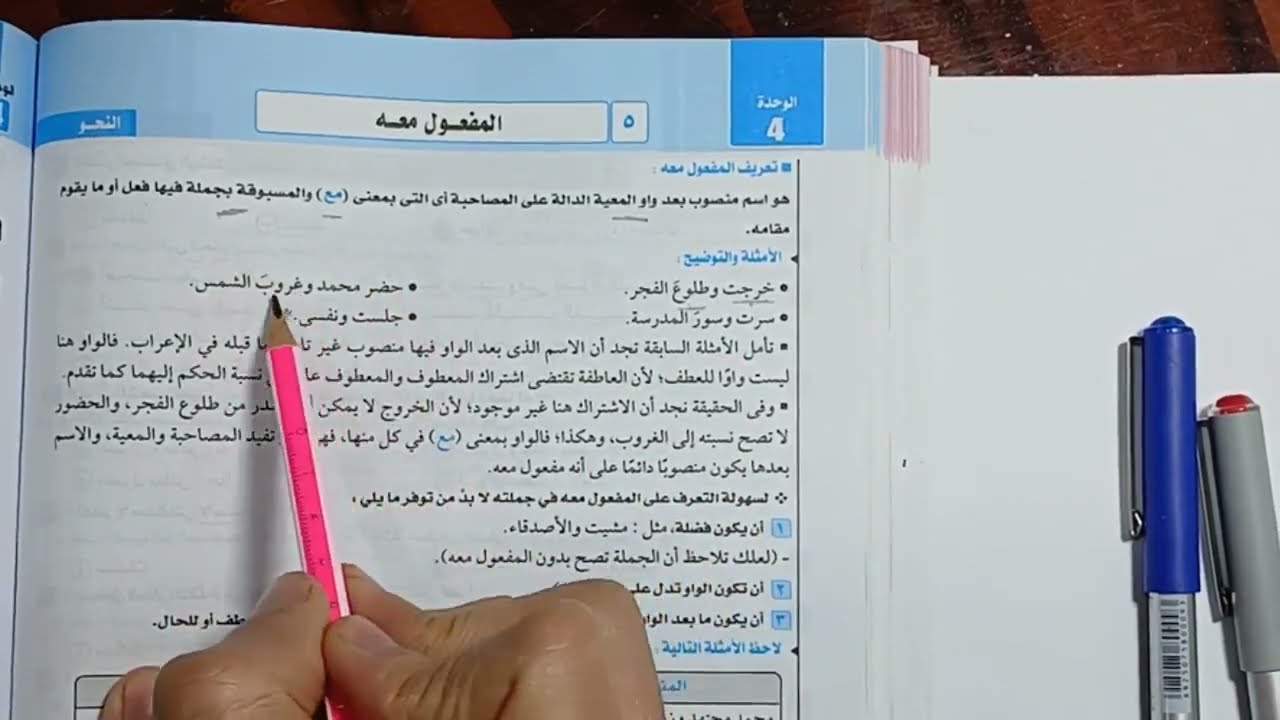 الوحدة
4
٥
المفعول معه
النحو
تعريف المفعول معه :
هو اسم منصوب بعد واو المعية الدالة على المصاحبة أى التى بمعنى (مع) والمسبوقة بجملة فيها فعل أو ما يقوم
مقامه.
الأمثلة والتوضيح :
• خرجت وطلوعَ الفجر. • حضر محمد وغروبَ الشمس.
• سرت وسورَ المدرسة. • جلست ونفسى.
تأمل الأمثلة السابقة تجد أن الاسم الذى بعد الواو فيها منصوب غير قبله في الإعراب. فالواو هنا
ليست واوًا للعطف؛ لأن العاطفة تقتضى اشتراك المعطوف والمعطوف نسبة الحكم إليهما كما تقدم.
وفى الحقيقة نجد أن الاشتراك هنا غير موجود؛ لأن الخروج لا يمكن من طلوع الفجر، والحضور
لا تصح نسبته إلى الغروب، وهكذا؛ فالواو بمعنى (مع) في كل منها، تفيد المصاحبة والمعية، والاسم
بعدها يكون منصوبًا دائمًا على أنه مفعول معه.
لسهولة التعرف على المفعول معه في جملته لا بدَّ من توفر ما يلي :
١ أن يكون فضلة، مثل : مشيت والأصدقاء.
- (لعلك تلاحظ أن الجملة تصح بدون المفعول معه).
٢ أن تكون الواو تدل
٣ أن يكون ما بعد أو للحال.
لاحظ الأمثلة التالية :